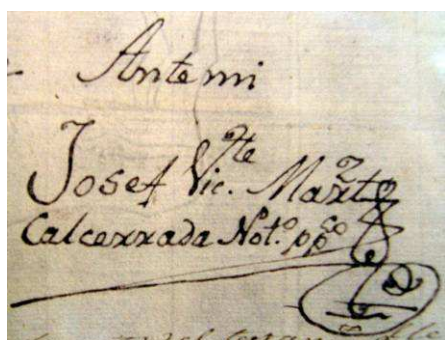 Antemi
Josef Vic.te Martz
Calcerrada Not.o pp.co